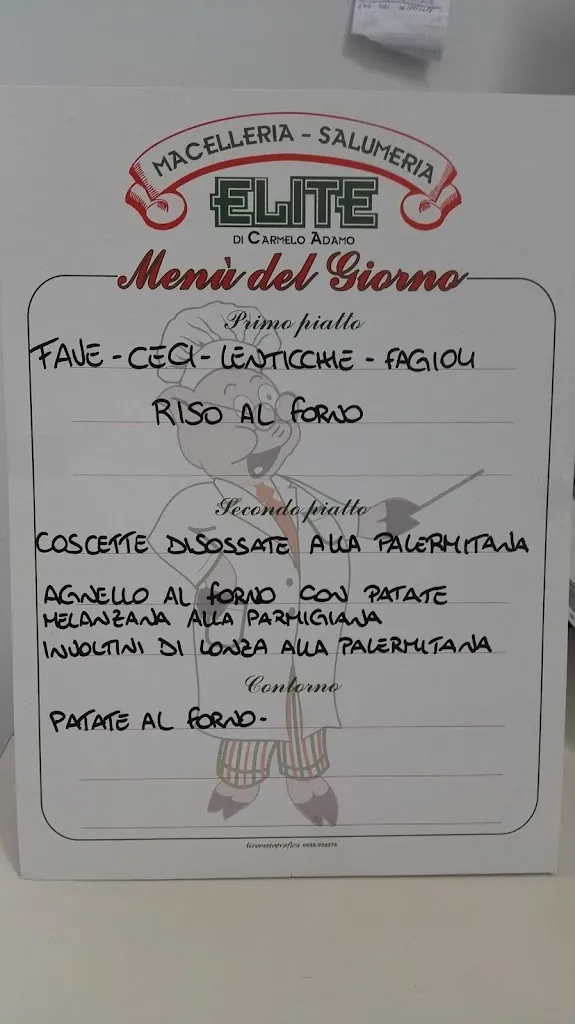 MACELLERIA - SALUMERIA
ELITE
DI CARMELO ADAMO
Menù del Giorno
Primo piatto
FAVE - CECI - LENTICCHIE - FAGIOLI
RISO AL FORNO
Secondo piatto
COSCETTE DISOSSATE ALLA PALERMITANA
AGNELLO AL FORNO CON PATATE
MELANZANA ALLA PARMIGIANA
INVOLTINI DI LONZA ALLA PALERMITANA
Contorno
PATATE AL FORNO-